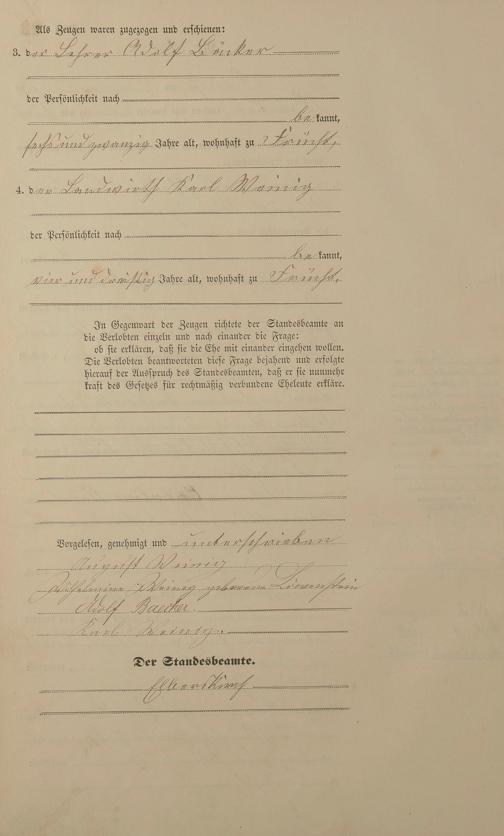 Als Zeugen waren zugezogen und erschienen:
3. der Lehrer Adolf Bäcker
der Persönlichkeit nach
be kannt,
sechs und zwanzig Jahre alt, wohnhaft zu Frücht,
4. der Landwirth Karl Weinig
der Persönlichkeit nach
be kannt,
vier und dreißig Jahre alt, wohnhaft zu Frücht.
In Gegenwart der Zeugen richtete der Standesbeamte an
die Verlobten einzeln und nach einander die Frage:
ob sie erklären, daß sie die Ehe mit einander eingehen wollen.
Die Verlobten beantworteten diese Frage bejahend und erfolgte
hierauf der Ausspruch des Standesbeamten, daß er sie nunmehr
kraft des Gesetzes für rechtmäßig verbundene Eheleute erkläre.
Vorgelesen, genehmigt und unterschrieben
August Weinig
Wilhelmine Weinig geborene Löwenstein
Adolf Baecker.
Karl Weinig.
Der Standesbeamte.